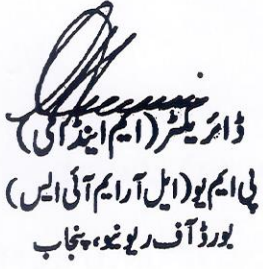 ڈائریکٹر (ایم اینڈ آئی)
پی ایم یو (ایل آر ایم آئی ایس)
بورڈ آف ریونیو، پنجاب